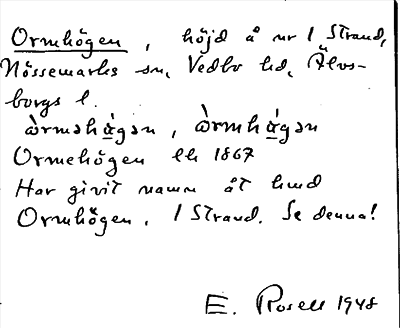 Ormhögen, höjd å nr 1 Strand,
Nössemarks sn, Vedbo hd, Älvs-
borgs l.
ὰrməhá̤gən, ὰrmhá̤gən
Ormehögen lh 1867
Har givit namn åt lmd
Ormhögen, 1 Strand. Se denna!
E. Rosell 1948